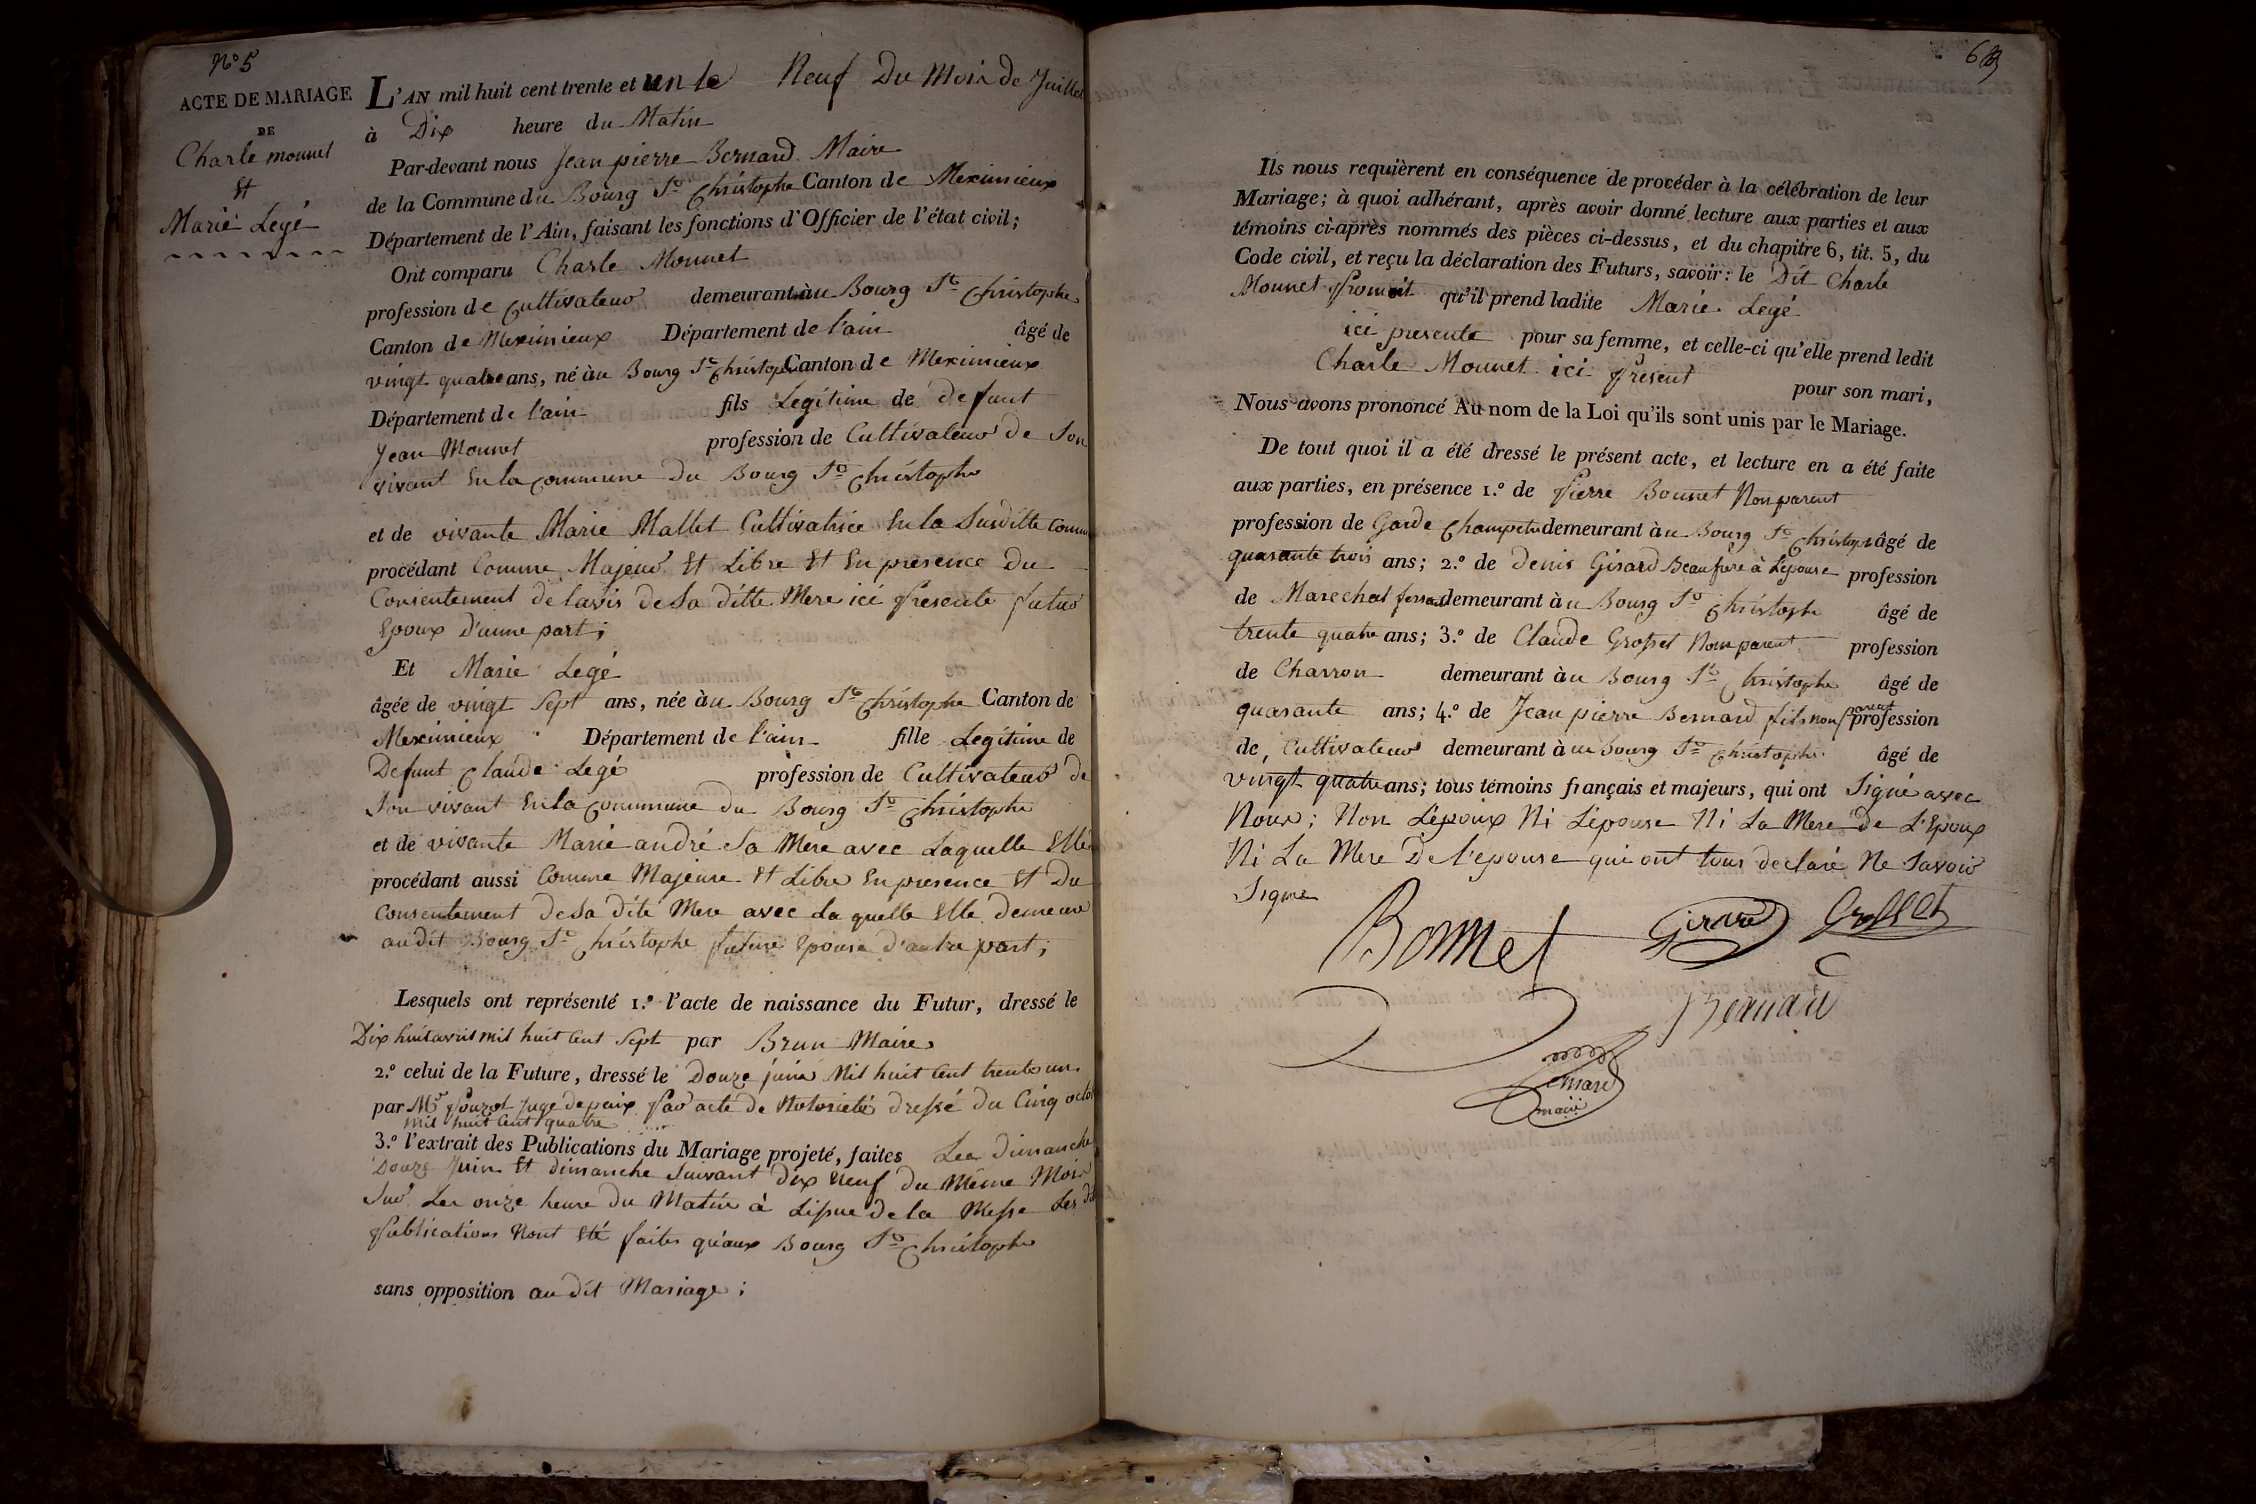 N.º 5
ACTE DE MARIAGE
DE
Charle monnet
Et
Marie Legé
L'AN mil huit cent trente et un le Neuf Du Mois de Juillet
à Dix heure du Matin
Par-devant nous Jean pierre Bernard Maire
de la Commune du Bourg St. Christophe Canton de Meximieux
Département de l'Ain, faisant les fonctions d'Officier de l'état civil;
Ont comparu Charle Monnet
profession de Cultivateur demeurant àu Bourg St. Christophe
Canton de Meximieux Département de l'ain âgé de
vingt quatre ans, né àu Bourg St. Christop Canton de Meximieux
Département de l'ain fils Legitime de defunt
Jean Monnet profession de Cultivateur de Son
vivant En la commune Du Bourg St. Christophe
et de vivante Marie Mallet Cultivatrice En la Susditte Comm
procédant Comme Majeur Et Libre Et En presence Du
Consentement De lavis De Sa ditte Mere ici Presente futur
Epoux D'aune part;
Et Marie Legé
âgée de vingt Sept ans, née àu Bourg St. Christophe Canton de
Meximieux Département de l'ain fille Legitime de
Defunt Claude Legé profession de Cultivateur De
Son vivant En la Commune du Bourg St. Christophe
et de vivante Marie andré Sa Mere avec Laquelle Elle
procédant aussi Comme Majeure Et Libre En presence Et Du
Consentement De Sa dite Mere avec La quelle Elle demeure
au dit Bourg St. Christophe future Epouse D'autre part;
Lesquels ont représenté 1.º l'acte de naissance du Futur, dressé le
Dix huit avril mil huit Cent Sept par Brun Maire
2.º celui de la Future, dressé le Douze juin Mil huit Cent trente un
par Mr. Juge de paix Par acte de Notorieté Dressé du Cinq octob
mil huit Cent quatre
3.º l'extrait des Publications du Mariage projeté, faites Les Dimanche
Douze Juin Et dimanche Suivant Dix Neuf du Même Mois
Sur Les onze heure du Matin à Lissue de la Messe Les dit
Publications Nont Eté faites qu'aux Bourg St. Christophe
sans opposition au dit Mariage;
Ils nous requièrent en conséquence de procéder à la célébration de leur
Mariage; à quoi adhérant, après avoir donné lecture aux parties et aux
témoins ci-après nommés des pièces ci-dessus, et du chapitre 6, tit. 5, du
Code civil, et reçu la déclaration des Futurs, savoir: le Dit Charle
Monnet Promit qu'il prend ladite Marie Legé
ici presente pour sa femme, et celle-ci qu'elle prend ledit
Charle Monnet ici Present pour son mari,
Nous avons prononcé Au nom de la Loi qu'ils sont unis par le Mariage.
De tout quoi il a été dressé le présent acte, et lecture en a été faite
aux parties, en présence 1.º de Pierre Bonnet Non parent
profession de Garde Champetre demeurant àu Bourg St. Christop âgé de
quarante trois ans; 2.º de Denis Girard Beaufrere à Lepouse profession
de Marechal ferrant demeurant àu Bourg St. Christophe âgé de
trente quatre ans; 3.º de Claude Grosset Non parent profession
de Charron demeurant àu Bourg St. Christophe âgé de
quarante ans; 4.º de Jean pierre Bernard fils non parent profession
de Cultivateur demeurant àu bourg St. Christophe âgé de
vingt quatre ans; tous témoins français et majeurs, qui ont Signé avec
Nous; Non L'epoux Ni L'epouse Ni La Mere De L'Epoux
Ni La Mere De l'epouse qui ont tous declaré Ne Savoir
Signer
Bonnet Girard Grosset
Bernard
maire